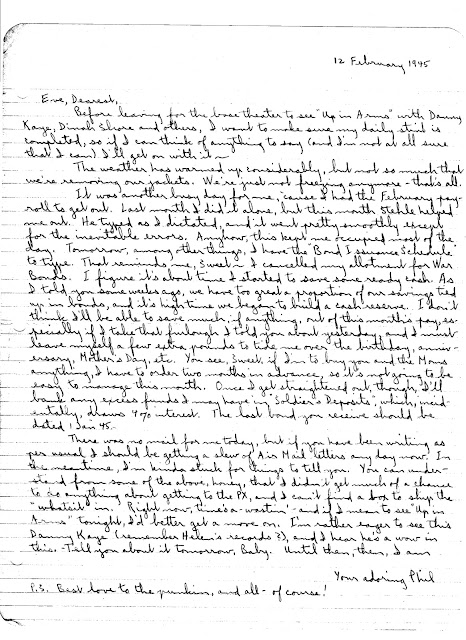 12 February 1945
Eve, Dearest,
Before leaving for the base theater to see "Up in Arms" with Danny
Kaye, Dinah Shore and others, I want to make sure my daily stint is
completed, so if I can think of anything to say (and I'm not at all sure
that I can) I'll get on with it —
The weather has warmed up considerably, but not so much that
we're removing our jackets. We're just not freezing anymore - that's all.
It was another busy day for me, 'cause I had the February pay-
roll to get out. Last month I did it alone, but this month Stehle helped
me out. He typed as I dictated, and it went pretty smoothly except
for the inevitable errors. Anyhow, this kept me occupied most of the
day. Tomorrow, among other things, I have the Bond Issuance Schedule
to type. That reminds me, Sweet - I cancelled my allotment for War
Bonds. I figure it's about time I started to save some ready cash. As
I told you some weeks ago, we have too great a proportion of our savings tied
up in bonds, and it's high time we began to build a cash reserve. I don't
think I'll be able to save much, if anything, out of this month's pay, es-
pecially if I take that furlough I told you about yesterday, and I must
leave myself a few extra pounds to tide me over the birthday, anniv-
ersary, Mother's Day, etc. You see, Sweet, if I'm to buy you and the Moms
anything, I have to order two months in advance, so it's not going to be
easy to manage this month. Once I get straightened out, though, I'll
bank any excess funds I may have in "Soldier's Deposits", which, incid-
entally, draws 4% interest. The last bond you receive should be
dated Jan 45.
There was no mail for me today, but if you have been writing as
per usual I should be getting a slew of Air Mail letters any day now. In
the meantime, I'm kinda stuck for things to tell you. You can under-
stand from some of the above, honey, that I didn't get much of a chance
to do anything about getting to the PX, and I can't find a box to ship the
"whatsit" in. Right now, time's a-wastin' - and if I mean to see "Up in
Arms" tonight, I'd better get a move on. I'm rather eager to see this
Danny Kaye (remember Helen's records?), and I hear he's a wow in
this. Tell you about it tomorrow, Baby. Until then, then, I am
Your adoring Phil
P.S. Best love to the punkin, and all - of course!